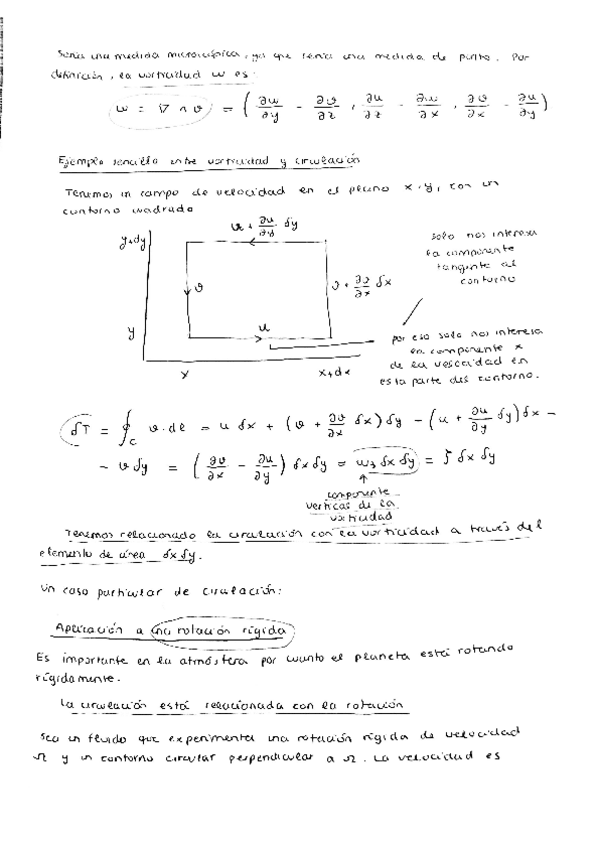 Sería una medida microscópica, ya que sería una medida de punto. Por
definición, la vorticidad w es:
w = ∇ ∧ v = ( ∂w/∂y - ∂v/∂z , ∂u/∂z - ∂w/∂x , ∂v/∂x - ∂u/∂y )
Ejemplo sencillo entre vorticidad y circulación
Tenemos un campo de velocidad en el plano x-y, con un
contorno cuadrado
y+dy
u + ∂u/∂y δy
v
v + ∂v/∂x δx
u
y
x
x+dx
solo nos interesa
la componente
tangente al
contorno
por eso solo nos interesa
la componente x
de la velocidad en
esta parte del contorno.
δΓ = ∮c v·dl = u δx + (v + ∂v/∂x δx) δy - (u + ∂u/∂y δy) δx -
- v δy = ( ∂v/∂x - ∂u/∂y ) δx δy = w₃ δx δy = ζ δx δy
componente
vertical de la
vorticidad
Tenemos relacionado la circulación con la vorticidad a través del
elemento de área δxδy.
Un caso particular de circulación:
Aplicación a una rotación rígida
Es importante en la atmósfera por cuanto el planeta está rotando
rígidamente.
La circulación está relacionada con la rotación
Sea un fluido que experimenta una rotación rígida de velocidad
Ω y un contorno circular perpendicular a Ω. La velocidad es